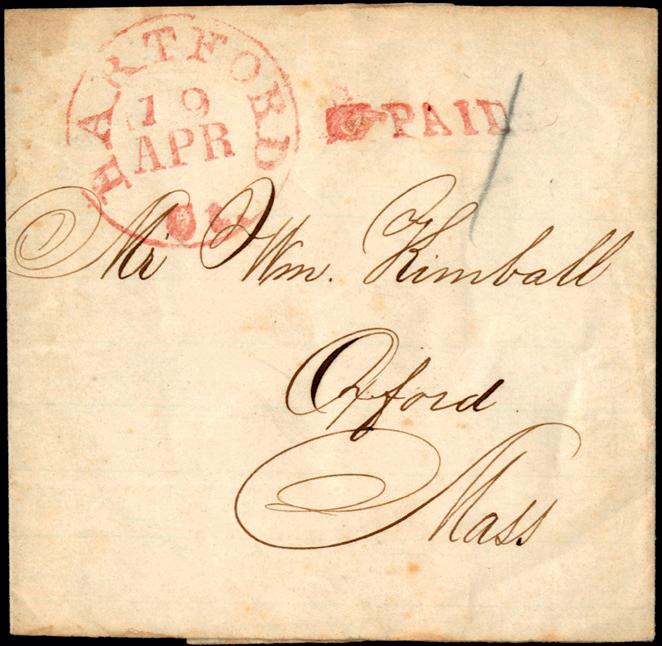 HARTFORD
19
APR
Ct.
PAID
Mr Wm. Kimball
Oxford
Mass